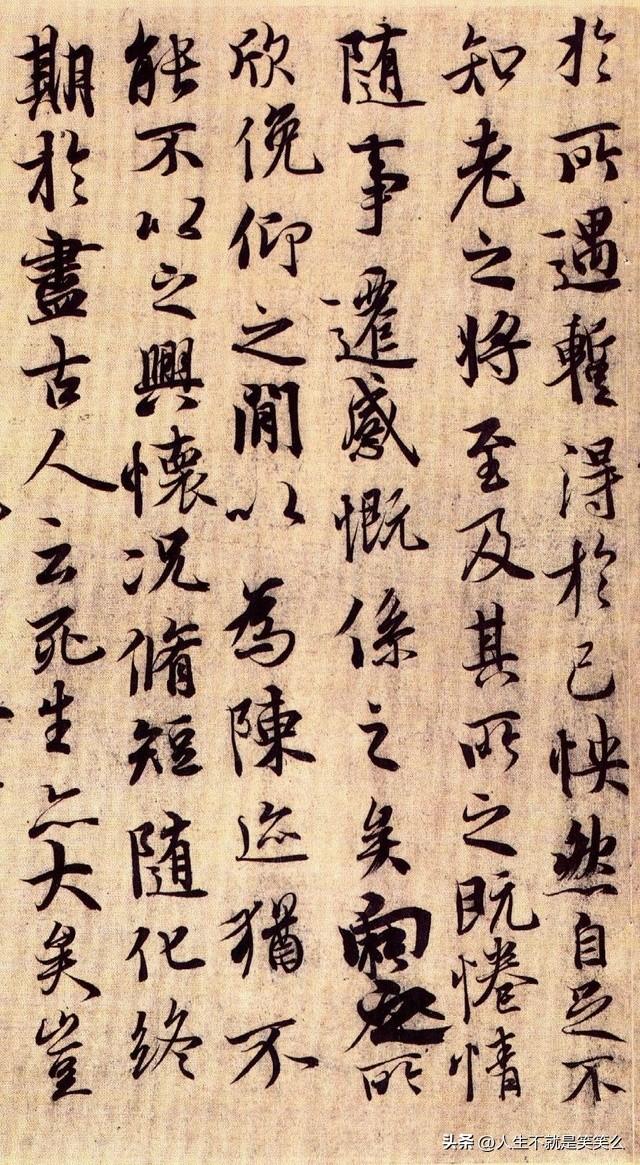 於所遇暫得於己怏然自足不
知老之將至及其所之既惓情
隨事遷感慨係之矣向之所
欣俛仰之閒以為陳迹猶不
能不以之興懷況脩短隨化終
期於盡古人云死生亦大矣豈
头条 @人生不就是笑笑么